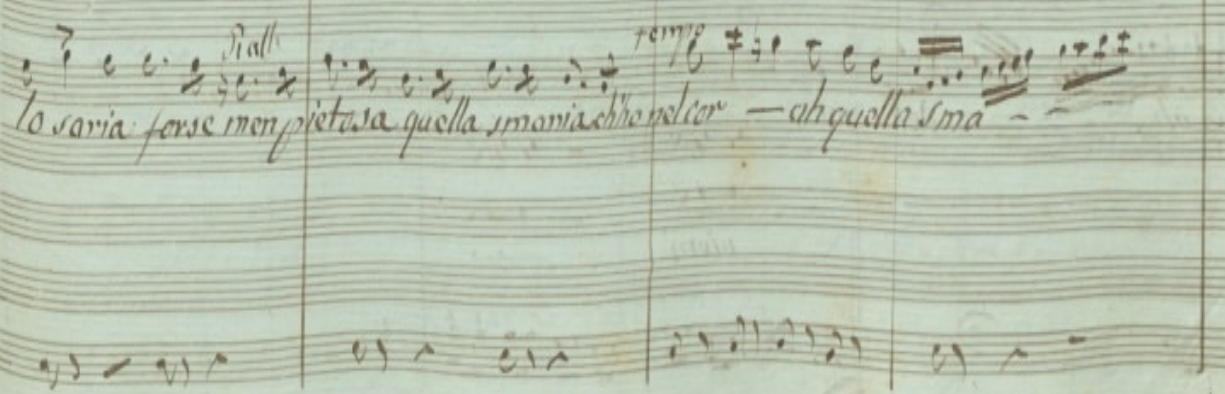 rall
tempo
lo saria forse men pietosa quella smania ch'ho nel cor — ah quella sma - -